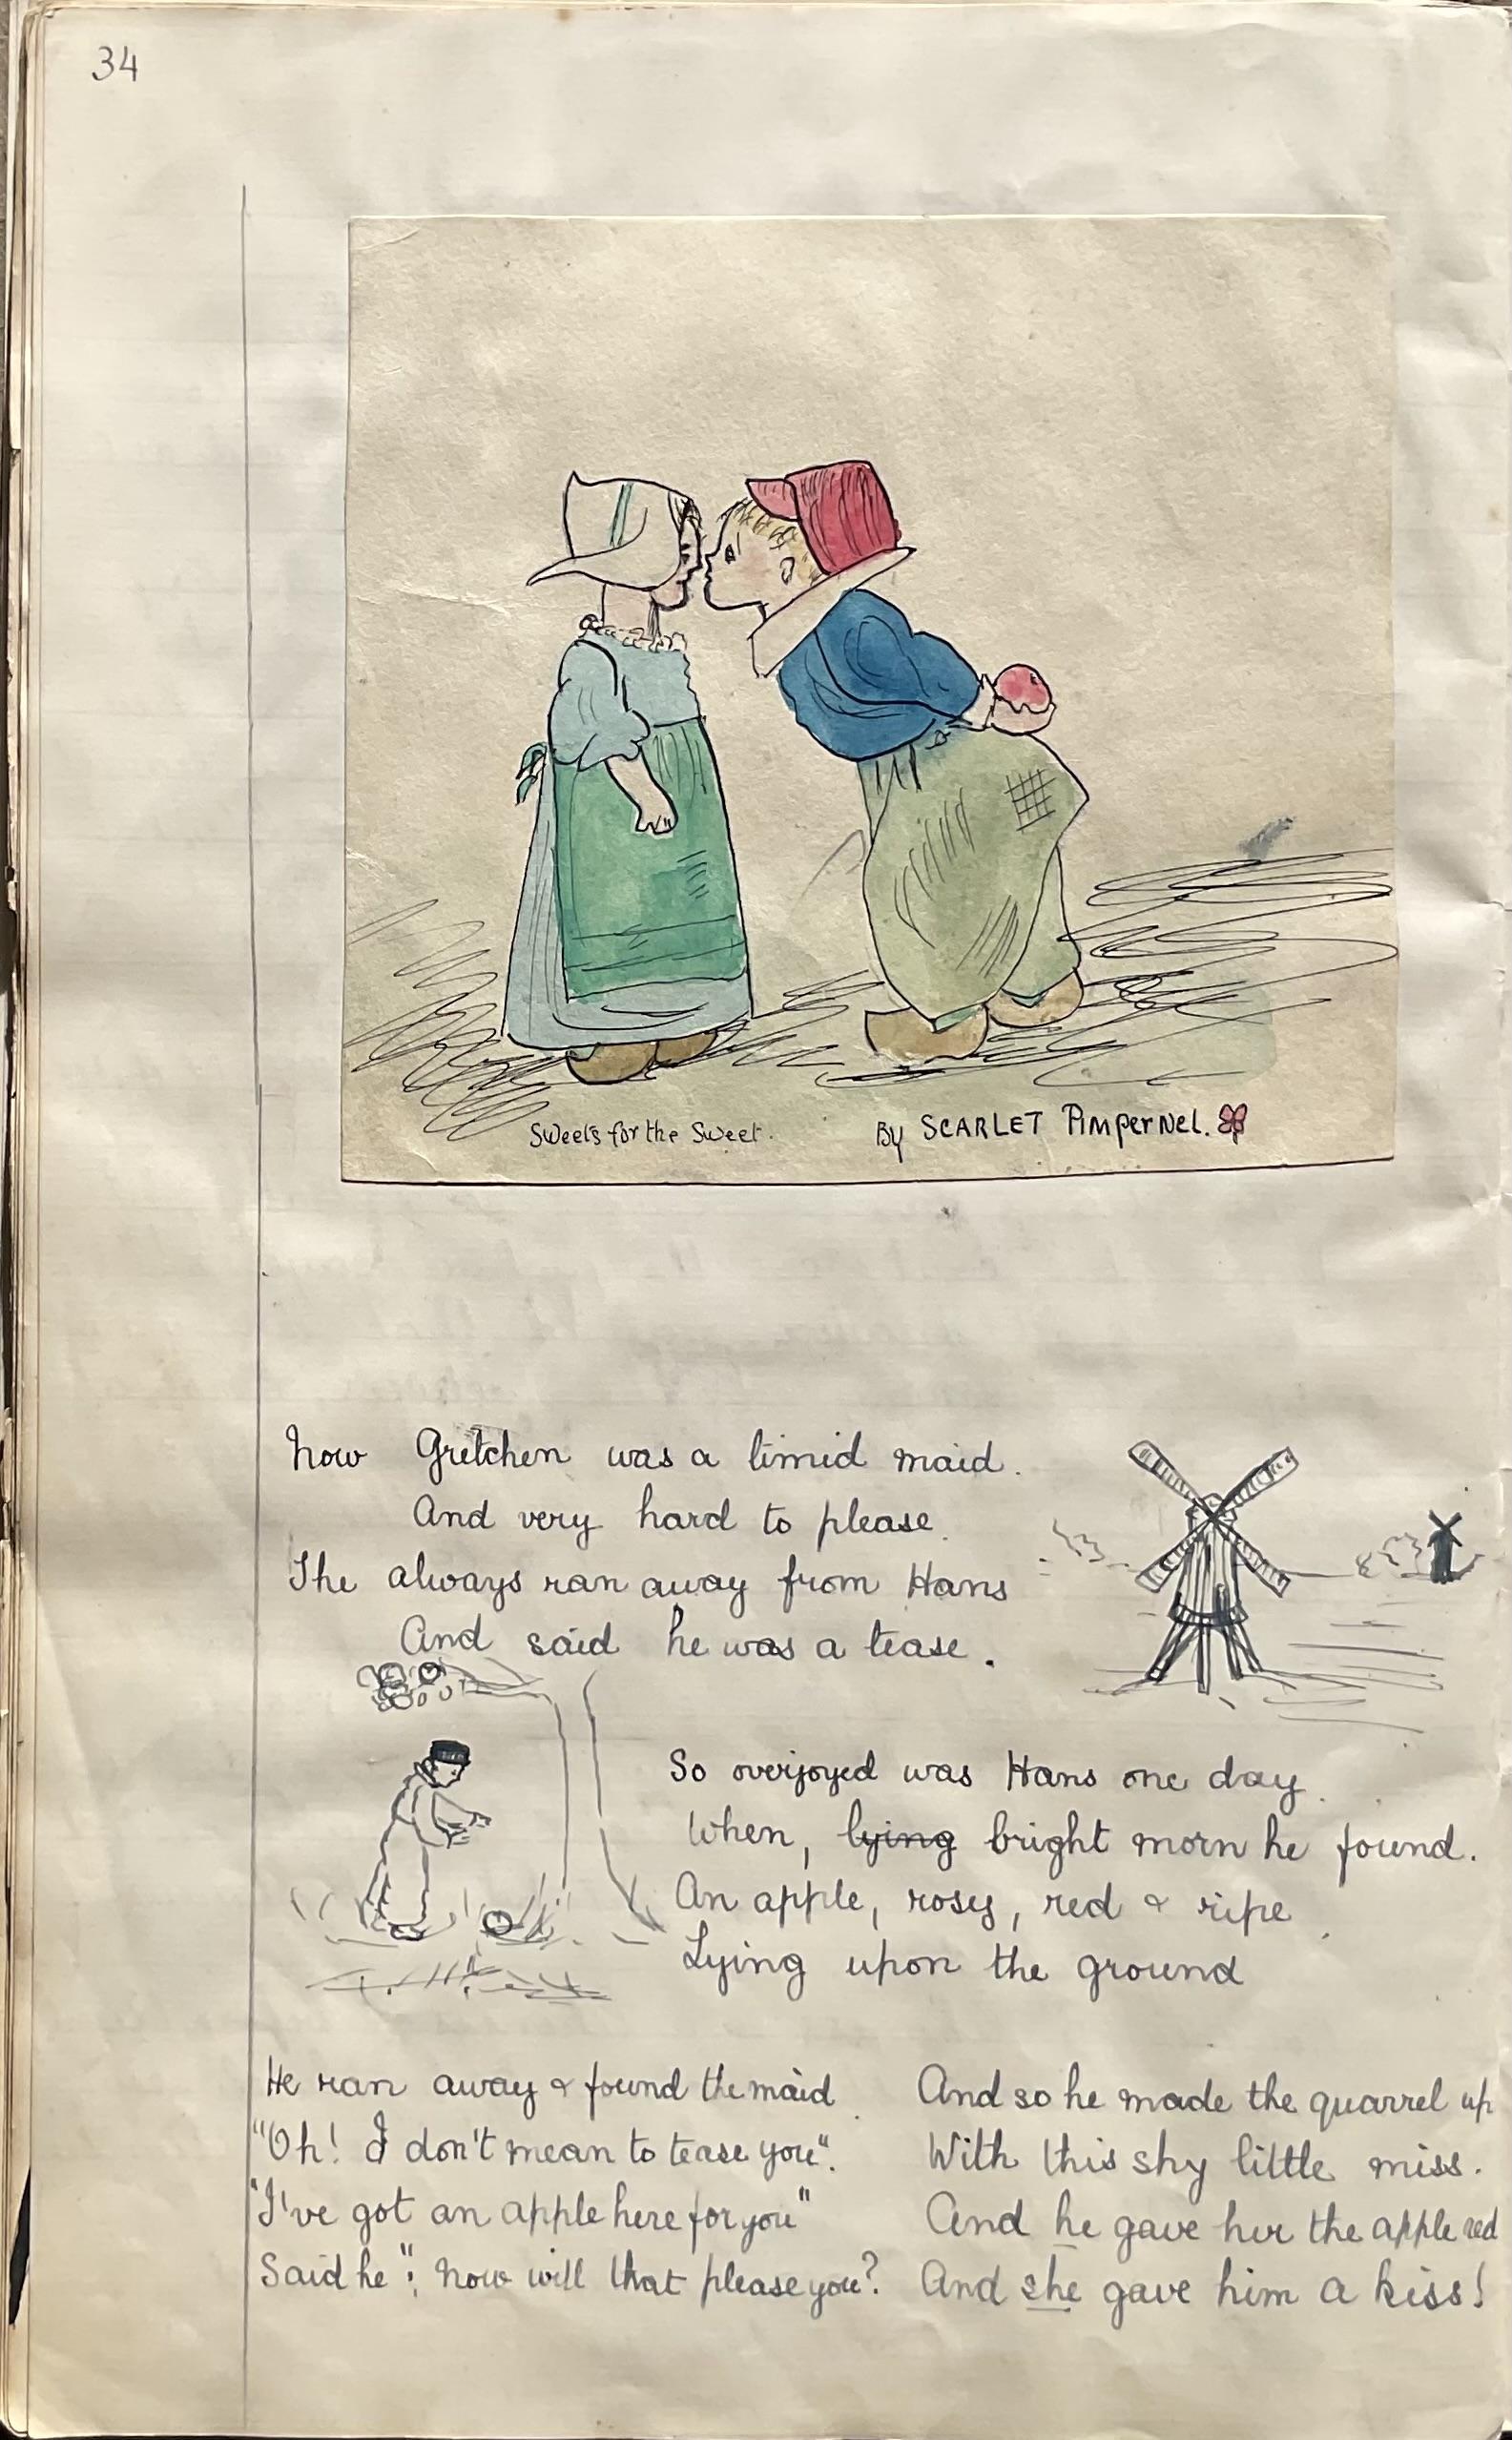 34
Sweets for the Sweet.
By SCARLET PimperNel.
Now Gretchen was a timid maid.
And very hard to please.
She always ran away from Hans
And said he was a tease.
So overjoyed was Hans one day.
When, lying bright morn he found.
An apple, rosy, red & ripe
Lying upon the ground
He ran away & found the maid.
"Oh! I don't mean to tease you".
"I've got an apple here for you"
Said he "; now will that please you?
And so he made the quarrel up
With this shy little miss.
And he gave her the apple red
And she gave him a kiss!